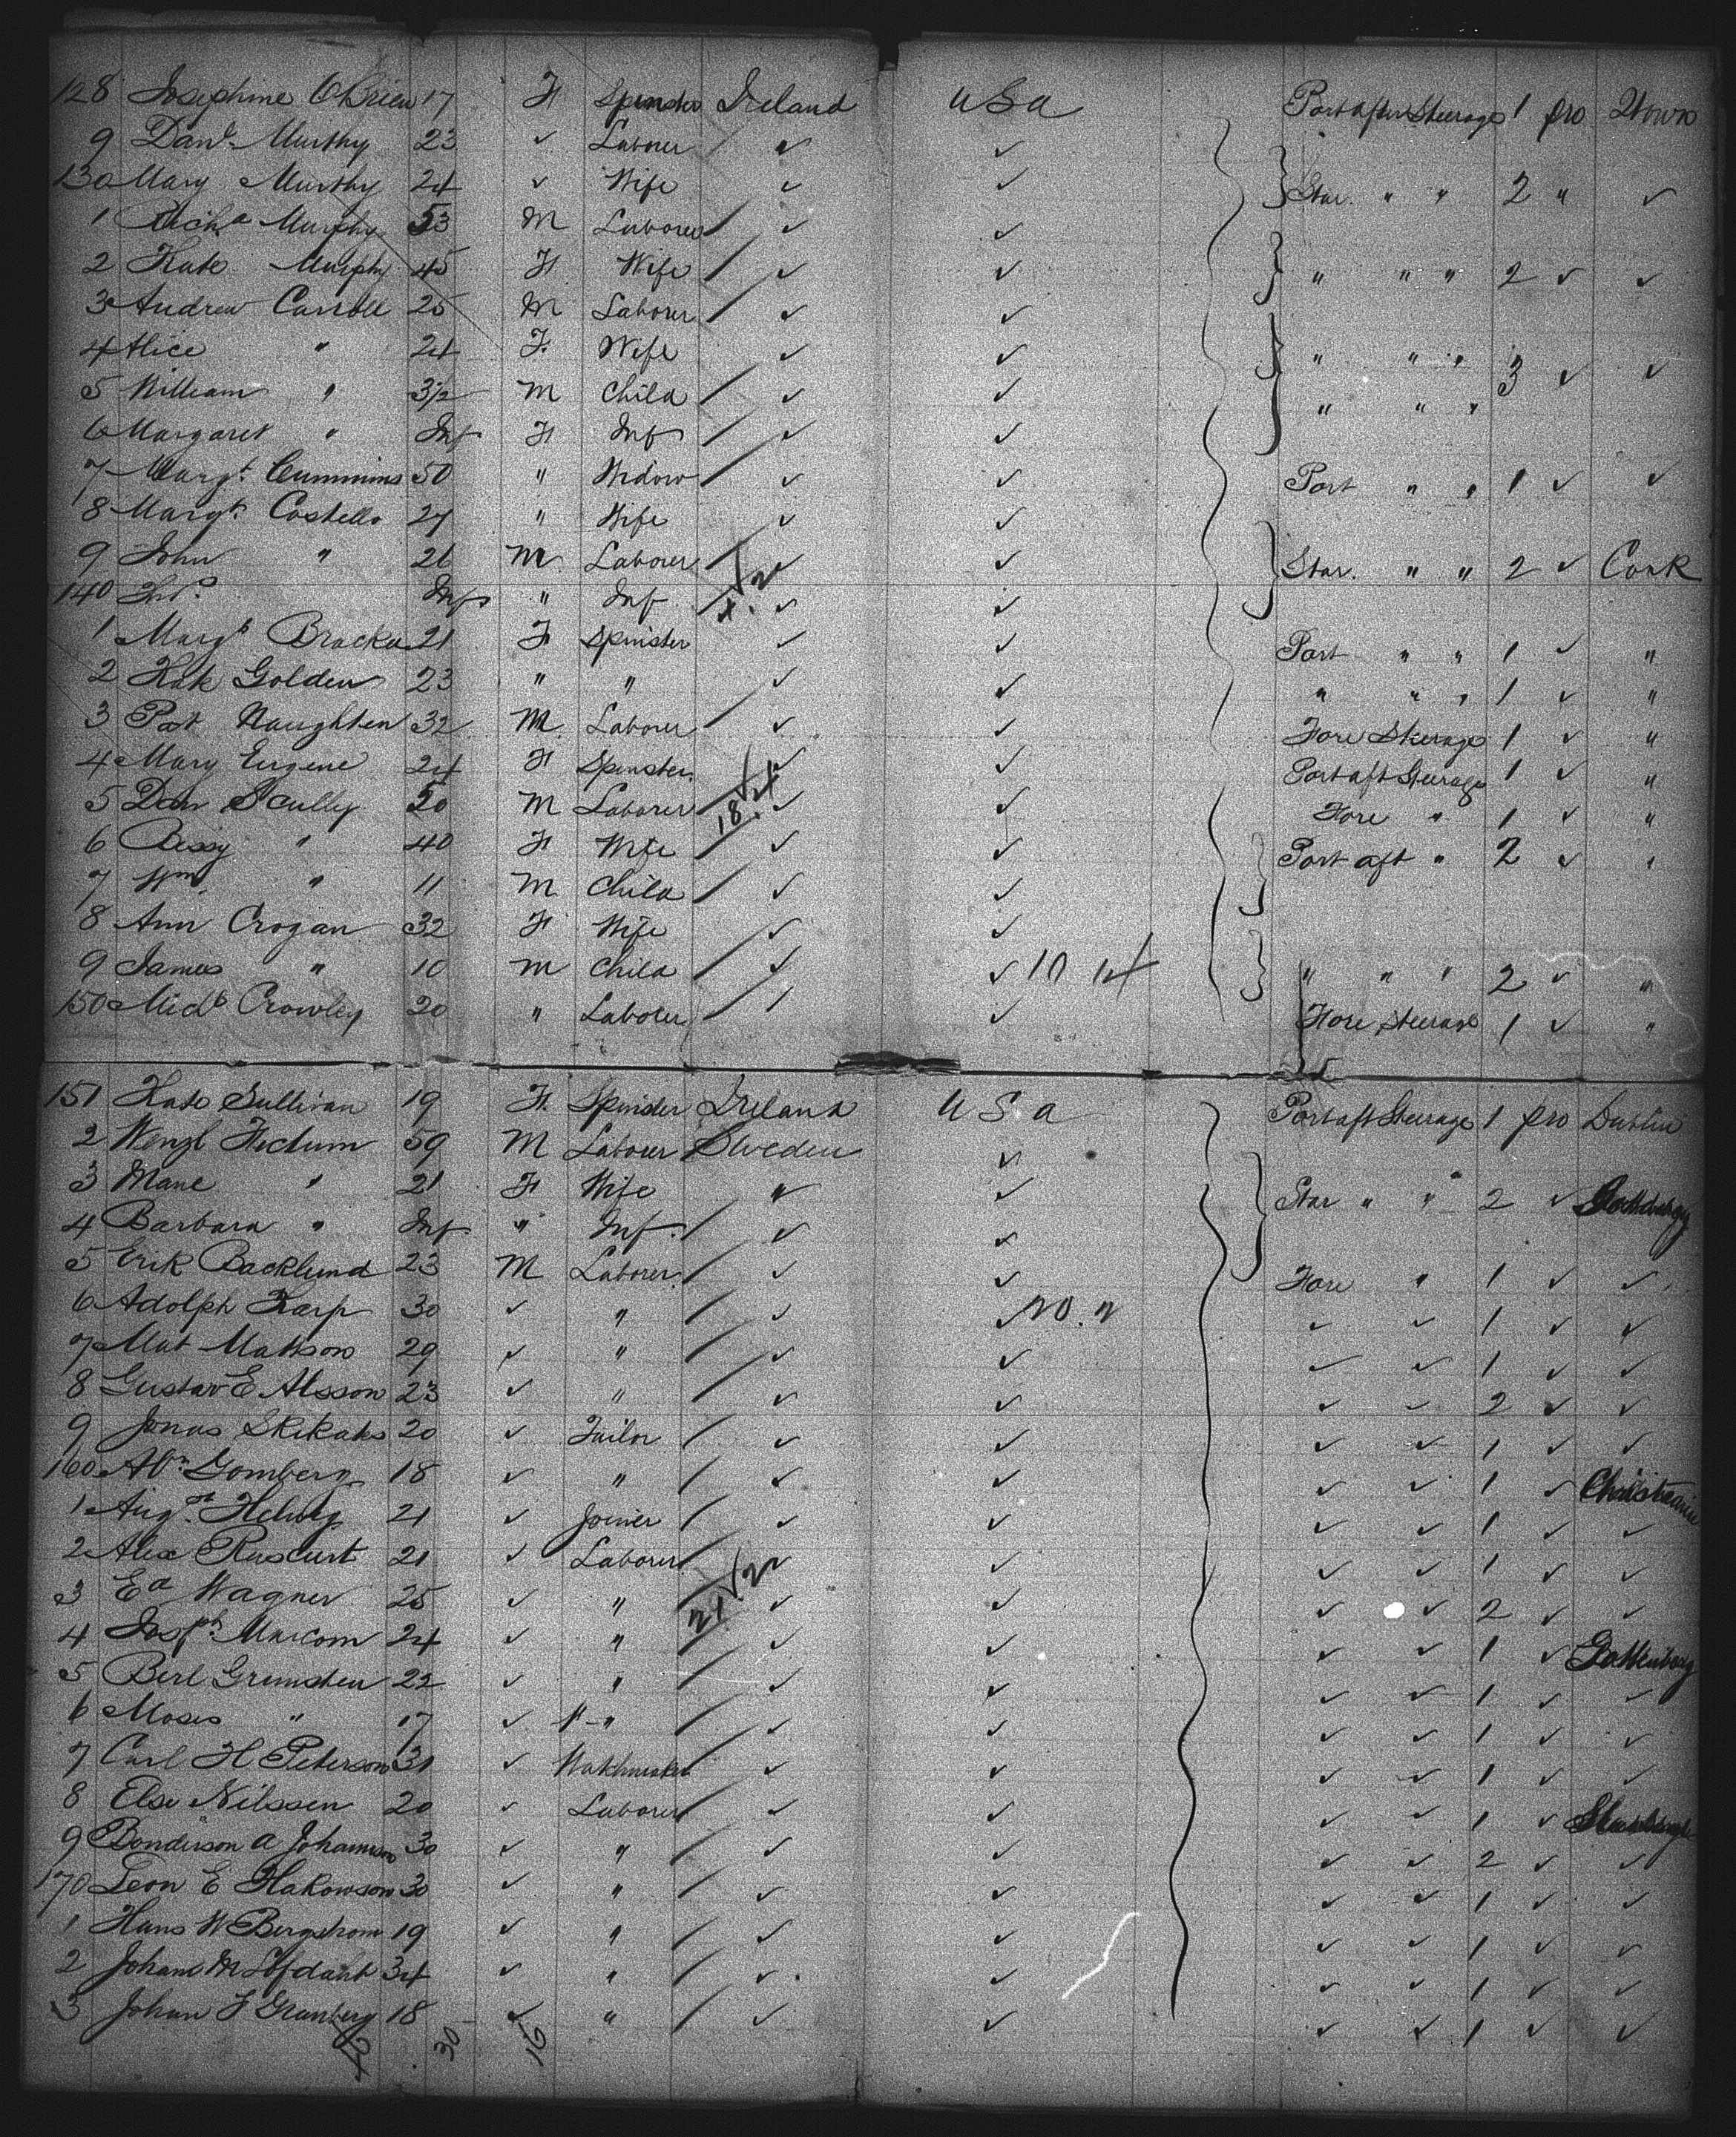 128 Josephine O'Brien 17 F Spinster Ireland USA Port after Steerage 1 pro Qtown
9 Danl. Murthy 23 ✓ Laborer " ✓
130 Mary Murthy 24 ✓ Wife ✓ ✓ Star. " " 2 " ✓
1 Richd Murphy 53 M Laborer ✓ ✓
2 Kate Murphy 45 F Wife ✓ ✓ " " " 2 ✓ ✓
3 Andrew Carroll 25 M Laborer ✓ ✓
4 Alice " 24 F. Wife ✓ ✓ " " " 3 ✓ ✓
5 William " 3½ M Child ✓ ✓ " " "
6 Margaret " Inf F Inf ✓ ✓
7 Margt. Cummins 50 " Widow ✓ ✓ Port " " 1 ✓ ✓
8 Margt. Costello 27 " Wife ✓ ✓
9 John " 26 M Laborer ✓ ✓ Star. " " 2 ✓ Cork
140 Inf " Inf ✓ ✓
1 Margt 21 F Spinster ✓ ✓ Port " " 1 ✓ "
2 Kate Golden 23 " " ✓ ✓ " " " 1 ✓ "
3 Pat Naughten 32 M. Laborer ✓ ✓ Fore Steerage 1 ✓ "
4 Mary Eugene 24 F Spinster. ✓ ✓ Port aft Steerage 1 ✓ "
5 Dan Scully 50 M Laborer ✓ ✓ Fore " 1 ✓ "
6 Bessy " 40 F Wife ✓ ✓ Port aft " 2 ✓ "
7 Wm. " 11 M Child ✓ ✓
8 Ann Crogan 32 F Wife ✓ ✓
9 James " 10 M Child ✓ ✓ 10 14 " " " 2 ✓ "
150 Michl Crowley 20 " Laborer ✓ Fore Steerage 1 ✓ "
151 Kate Sullivan 19 F. Spinster Ireland USA Port aft Steerage 1 pro Dublin
2 Wenzl 59 M Laborer Sweden ✓
3 Marie " 21 F Wife " ✓ Star " " 2 ✓ Gottenburg
4 Barbara " Inf. " Inf. ✓ ✓
5 Erik Backlund 23 M Laborer. ✓ ✓ Fore " 1 ✓ ✓
6 Adolph Karp 30 ✓ " ✓ ✓ ✓ ✓ 1 ✓ ✓
7 Mat Matson 29 ✓ " ✓ ✓ ✓ ✓ 1 ✓ ✓
8 Gustav E Alsson 23 ✓ " ✓ ✓ ✓ ✓ 2 ✓ ✓
9 Jonas 20 ✓ Tailor ✓ ✓ ✓ ✓ 1 ✓ ✓
160 Abm. Gomberg 18 ✓ " ✓ ✓ ✓ ✓ 1 ✓ Christiania
1 Augst. Helwig 21 ✓ Joiner ✓ ✓ ✓ ✓ 1 ✓ ✓
2 Alex 21 ✓ Laborer ✓ ✓ ✓ ✓ 1 ✓ ✓
3 Ed Wagner 25 ✓ " ✓ ✓ ✓ ✓ 2 ✓ ✓
4 Josph. Marcom 24 ✓ " ✓ ✓ ✓ ✓ 1 ✓ Gottenburg
5 Berl 22 ✓ " ✓ ✓ ✓ ✓ 1 ✓ ✓
6 Moses " 17 ✓ " ✓ ✓ ✓ ✓ 1 ✓ ✓
7 Carl H Peterson 31 ✓ Watchmaker ✓ ✓ ✓ ✓ 1 ✓ ✓
8 Else Nilssen 20 ✓ Laborer ✓ ✓ ✓ ✓ 1 ✓
9 Bonderson A Johannson 30 ✓ " ✓ ✓ ✓ ✓ 2 ✓ ✓
170 Leon E Hakonson 30 ✓ " ✓ ✓ ✓ ✓ 1 ✓ ✓
1 Hans W Bergstrom 19 ✓ " ✓ ✓ ✓ ✓ 1 ✓ ✓
2 Johan M 34 ✓ " ✓ ✓ ✓ ✓ 1 ✓ ✓
3 Johan F Granberg 18 ✓ " ✓ ✓ ✓ ✓ 1 ✓ ✓
30 16